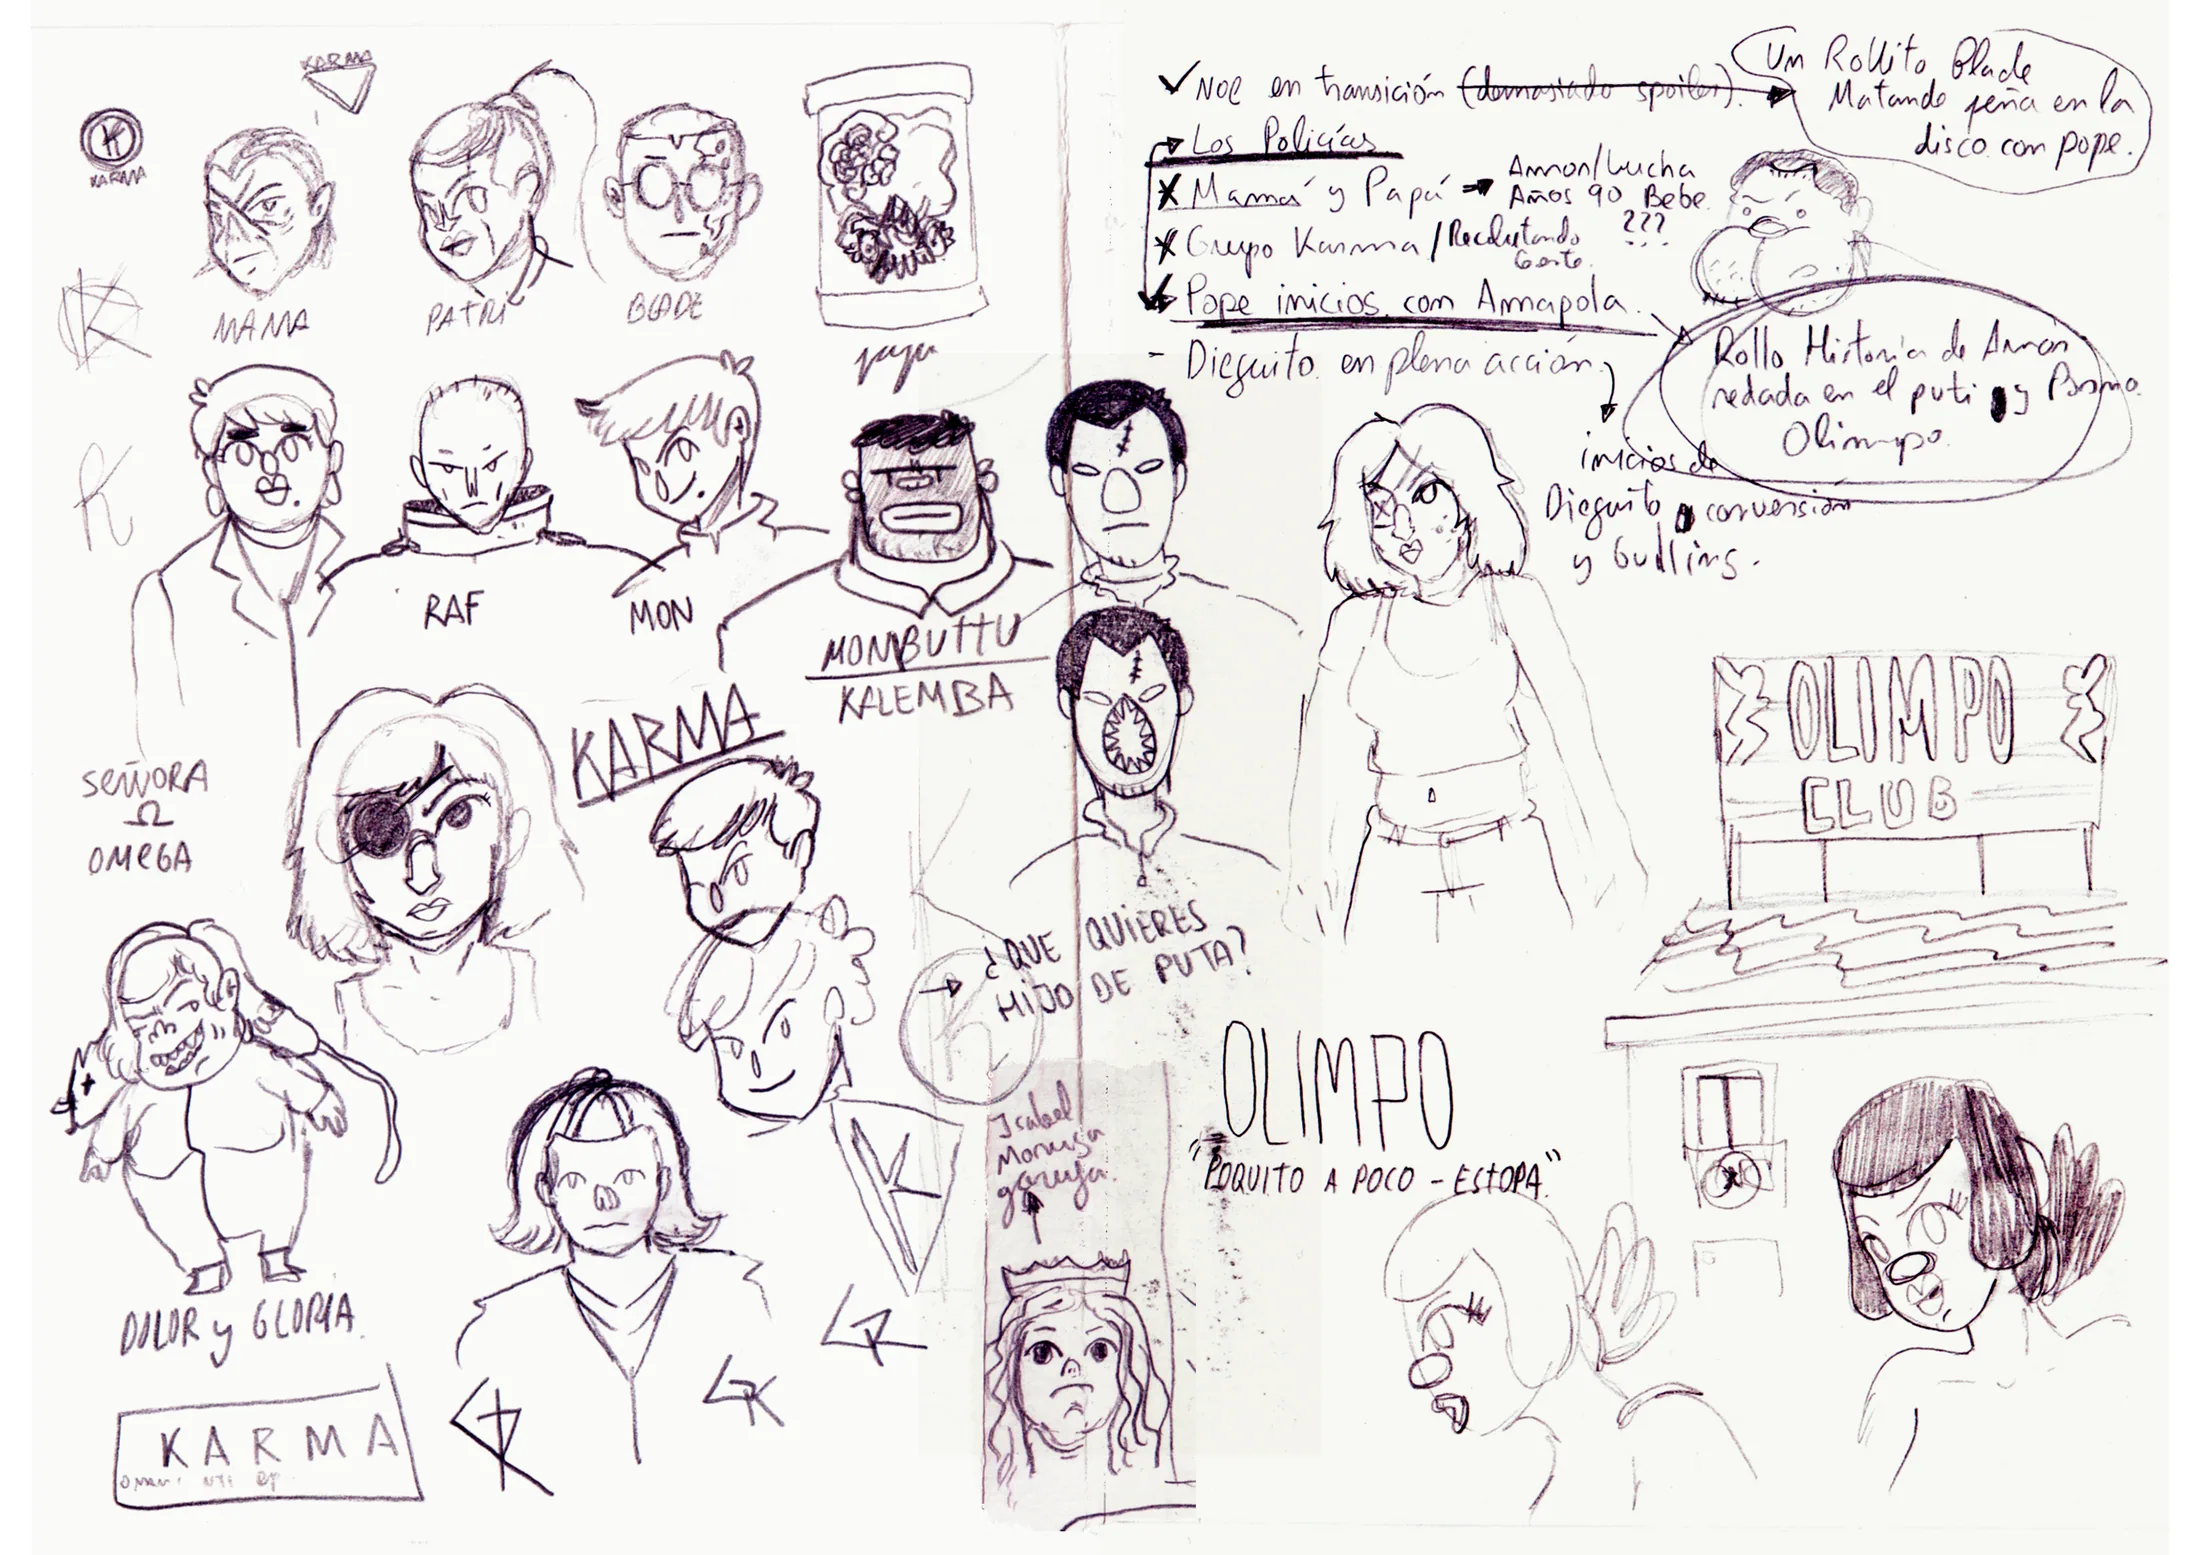 KARMA
K
KARMA
MAMA
PATRI
BLADE
K
K
RAF
MON
MONBUTTU
KALEMBA
SEÑORA
Ω
OMEGA
KARMA
DOLOR y GLORIA.
KARMA
K
¿QUE QUIERES
HIJO DE PUTA?
Isabel
✓ NOE en transición (demasiado spoiler).
Un Rollito Blade
Matando peña en la
disco con pope.
Los Policías
X Mamá y Papá → Amor/Lucha
Años 90 Bebe
???
X Grupo Karma / Reclutando
Gente.
Pope inicios con Amapola.
Rollo Historia de Amor
redada en el puti y Poema
Olimpo.
- Dieguito en plena acción.
inicios de
Dieguito y conversión
y Gudlins.
OLIMPO
CLUB
OLIMPO
"POQUITO A POCO - ESTOPA"